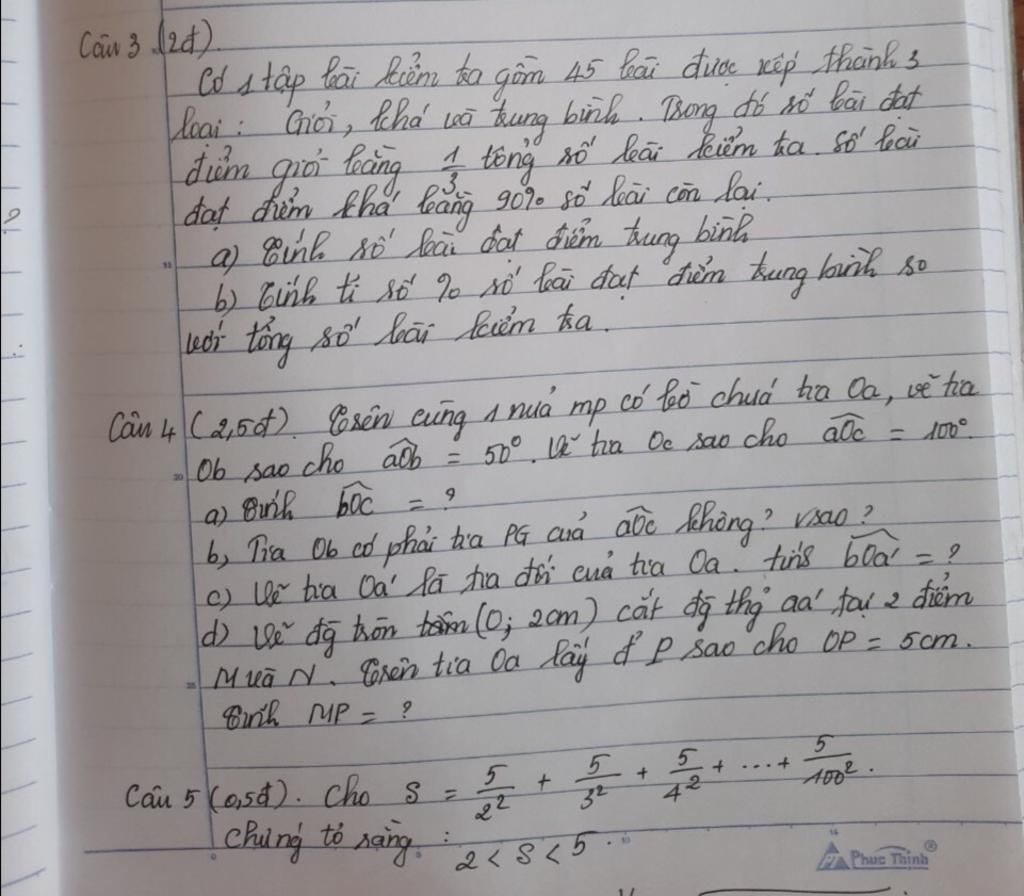 Câu 3 (2đ).
Có 1 tập bài kiểm tra gồm 45 bài được xếp thành 3
loại: Giỏi, khá và trung bình. Trong đó số bài đạt
điểm giỏi bằng 1/3 tổng số bài kiểm tra. số bài
đạt điểm khá bằng 90% số bài còn lại.
a) Tính số bài đạt điểm trung bình
b) Tính tỉ số % số bài đạt điểm trung bình so
với tổng số bài kiểm tra.
Câu 4 (2,5đ). Trên cùng 1 nửa mp có bờ chứa tia Oa, vẽ tia
Ob sao cho aÔb = 50°. Vẽ tia Oc sao cho aÔc = 100°.
a) Tính bÔc = ?
b, Tia Ob có phải tia PG của aÔc không? Vsao?
c) Vẽ tia Oa' là tia đối của tia Oa. tính bÔa' = ?
d) Vẽ đg tròn tâm (O; 2cm) cắt đg thg aa' tại 2 điểm
M và N. Trên tia Oa lấy đ P sao cho OP = 5cm.
Tính MP = ?
Câu 5 (0,5đ). Cho S = 5/2² + 5/3² + 5/4² + ... + 5/100².
Chứng tỏ rằng : 2 < S < 5.
Phuc Thinh®